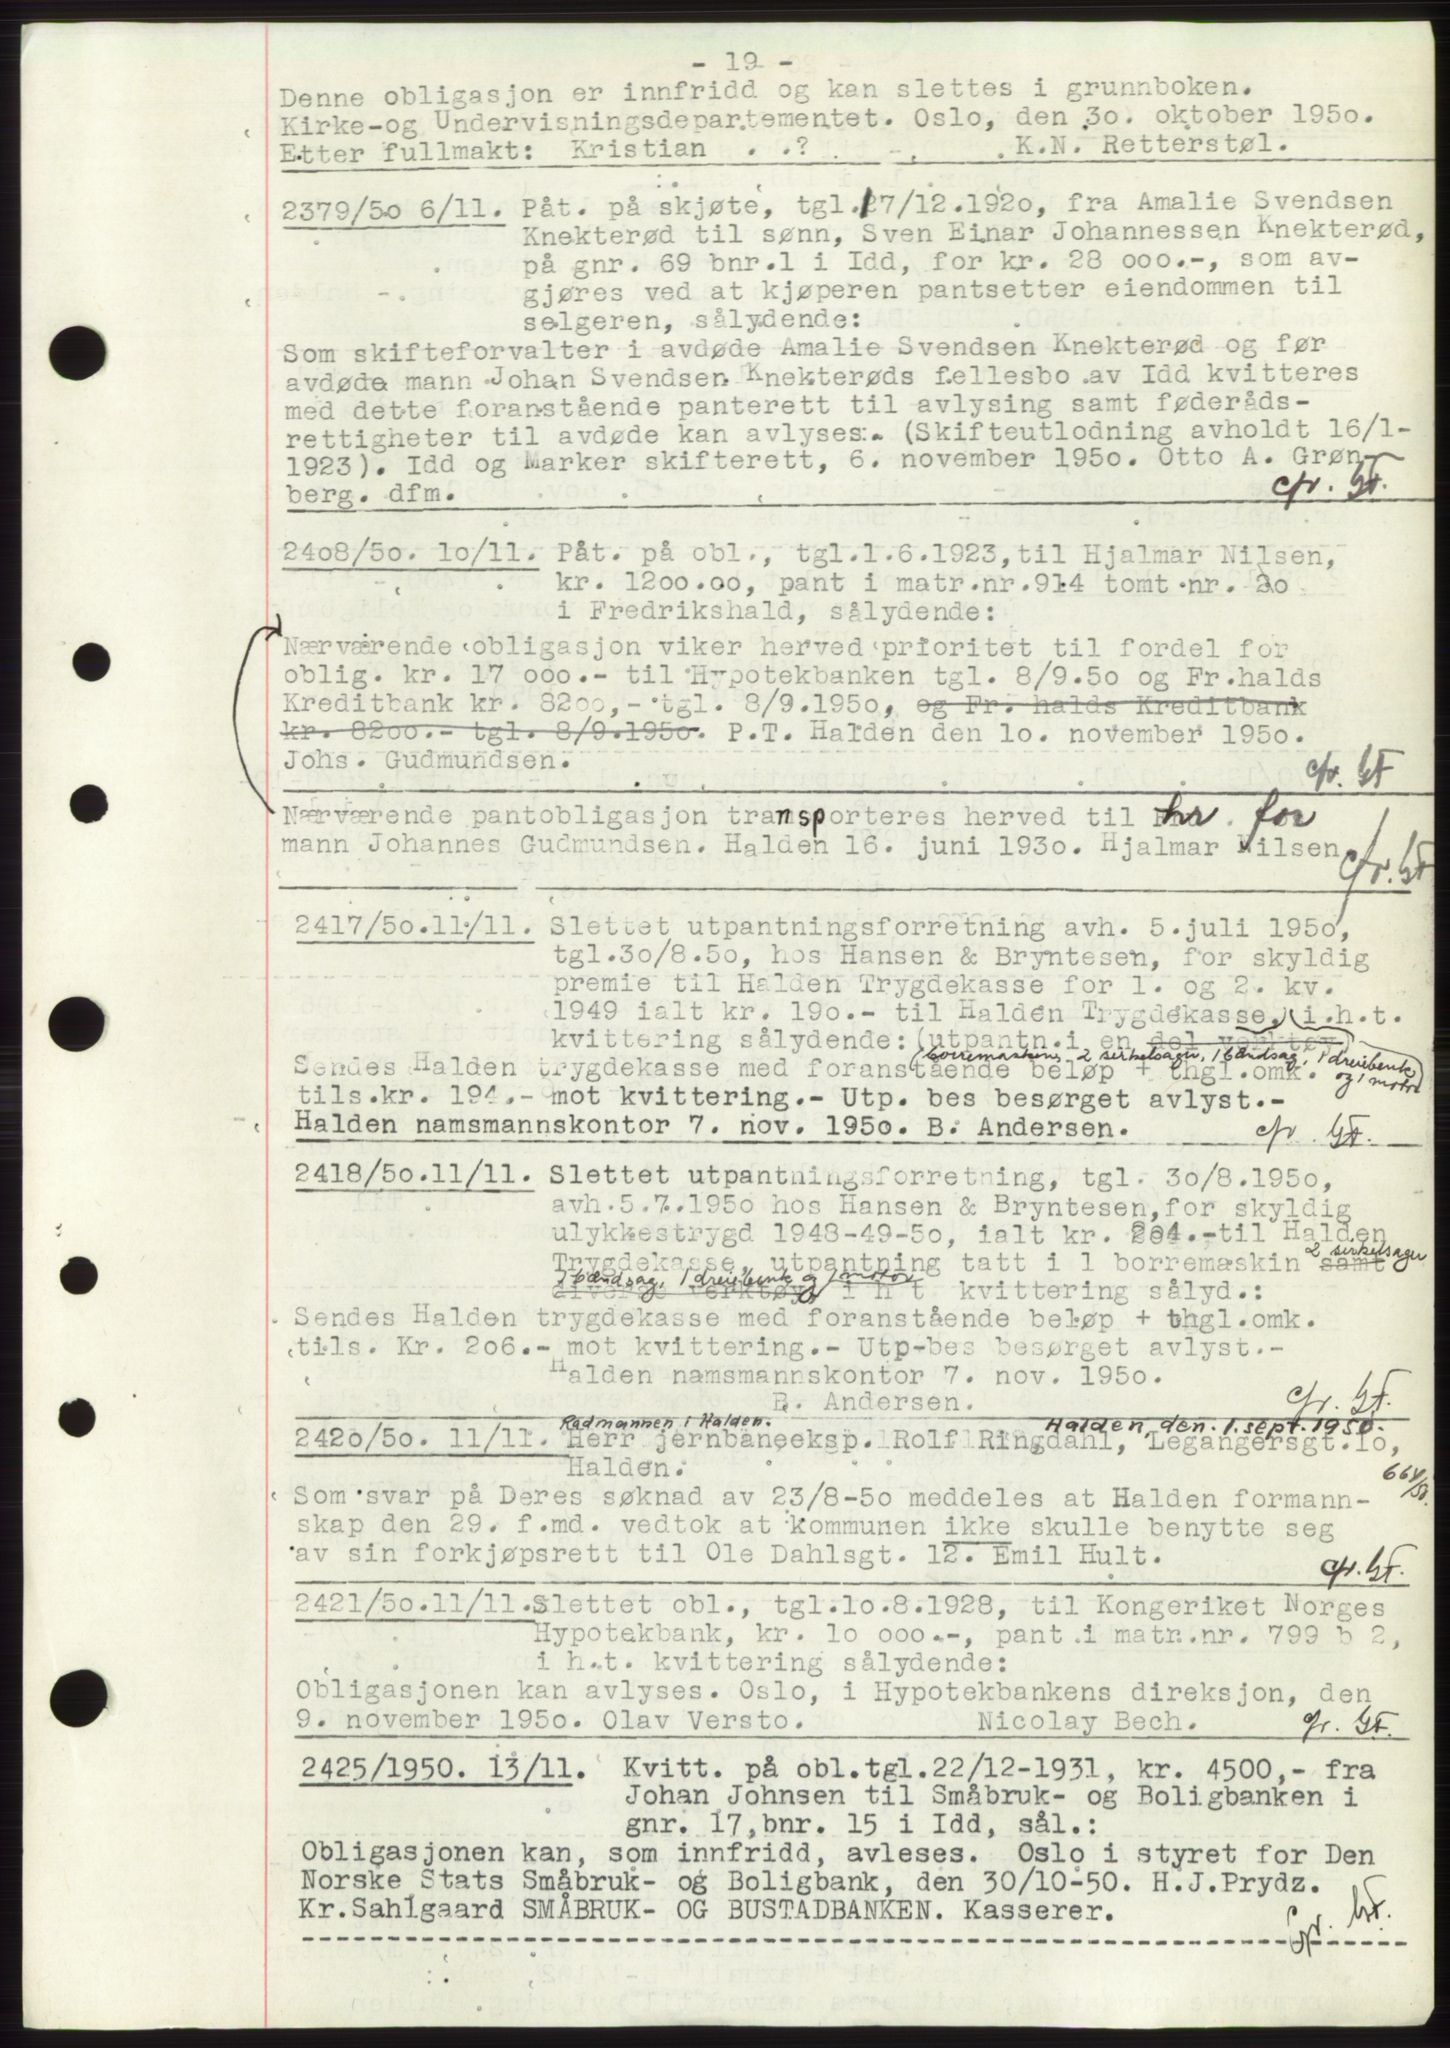 - 19 -
Denne obligasjon er innfridd og kan slettes i grunnboken.
Kirke-og Undervisningsdepartementet. Oslo, den 3o. oktober 195o.
Etter fullmakt: Kristian . .? K.N. Retterstøl.
2379/5o 6/11. Påt. på skjøte, tgl.17/12.192o, fra Amalie Svendsen
Knekterød til sønn, Sven Einar Johannessen Knekterød,
på gnr. 69 bnr.1 i Idd, for kr. 28 ooo.-, som av-
gjøres ved at kjøperen pantsetter eiendommen til
selgeren, sålydende:
Som skifteforvalter i avdøde Amalie Svendsen Knekterød og før
avdøde mann Johan Svendsen Knekterøds fellesbo av Idd kvitteres
med dette foranstående panterett til avlysing samt føderåds-
rettigheter til avdøde kan avlyses. (Skifteutlodning avholdt 16/1-
1923). Idd og Marker skifterett, 6. november 195o. Otto A. Grøn-
berg. dfm. cfr. GF.
24o8/5o. 1o/11. Påt. på obl., tgl.1.6.1923, til Hjalmar Nilsen,
kr. 12oo.oo, pant i matr.nr.914 tomt nr. 2o
i Fredrikshald, sålydende:
Nærværende obligasjon viker herved prioritet til fordel for
oblig. kr. 17 ooo.- til Hypotekbanken tgl. 8/9.5o og Fr.halds
Kreditbank kr. 82oo,- tgl. 8/9.195o, og Fr. halds Kreditbank
kr. 82oo.- tgl. 8/9.195o. P.T. Halden den 1o. november 195o.
Johs. Gudmundsen. cfr. GF
Nærværende pantobligasjon transporteres herved til hr for
mann Johannes Gudmundsen. Halden 16. juni 193o. Hjalmar Nilsen
cfr. GF
2417/5o.11/11. Slettet utpantningsforretning avh. 5.juli 195o,
tgl.3o/8.5o, hos Hansen & Bryntesen, for skyldig
premie til Halden Trygdekasse for 1. og 2. kv.
1949 ialt kr. 19o.- til Halden Trygdekasse,) i.h.t.
kvittering sålydende: (utpantn.i en del verktøy)
borremaskin, 2 sirkelsager, 1 båndsag, 1 dreiebenk
og 1 motor
Sendes Halden trygdekasse med foranstående beløp + thgl.omk.
tils.kr. 194.- mot kvittering.- Utp. bes besørget avlyst.-
Halden namsmannskontor 7. nov. 195o. B. Andersen. cfr GF.
2418/5o.11/11. Slettet utpantningsforretning, tgl. 3o/8.195o,
avh.5.7.195o hos Hansen & Bryntesen, for skyldig
ulykkestrygd 1948-49-5o, ialt kr. 2o4.-til Halden
Trygdekasse, utpantning tatt i 1 borremaskin samt 2 sirkelsager
1 båndsag, 1 dreiebenk og 1 motor
diverse verktøy, i h t kvittering sålyd.:
Sendes Halden trygdekasse med foranstående beløp + thgl.omk.
tils. Kr. 2o6.- mot kvittering.- Utp-bes besørget avlyst.-
Halden namsmannskontor 7. nov. 195o.
B. Andersen. cfr. GF.
Rådmannen i Halden. Halden, den. 1. sept. 1950.
242o/5o. 11/11. Herr jernbaneeksp. Rolf Ringdahl, Legangersgt.1o,
Halden. 668/50.
Som svar på Deres søknad av 23/8-5o meddeles at Halden formann-
skap den 29. f.md. vedtok at kommunen ikke skulle benytte seg
av sin forkjøpsrett til Ole Dahlsgt. 12. Emil Hult.
cfr. GF.
2421/5o.11/11.Slettet obl., tgl.1o.8.1928, til Kongeriket Norges
Hypotekbank, kr. 1o ooo.-, pant i matr.nr. 799 b 2,
i h.t. kvittering sålydende:
Obligasjonen kan avlyses. Oslo, i Hypotekbankens direksjon, den
9. november 195o. Olav Versto. Nicolay Bech. cfr. GF.
2425/1950. 13/11. Kvitt. på obl.tgl.22/12-1931, kr. 4500,- fra
Johan Johnsen til Småbruk- og Boligbanken i
gnr. 17,bnr. 15 i Idd, sål.:
Obligasjonen kan, som innfridd, avleses. Oslo i styret for Den
Norske Stats Småbruk- og Boligbank, den 30/10-50. H.J.Prydz.
Kr.Sahlgaard SMÅBRUK- OG BUSTADBANKEN. Kasserer.
cfr. GF.